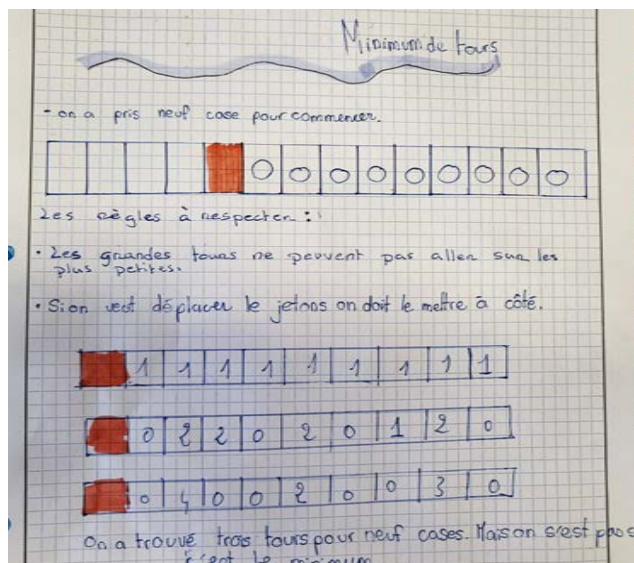 Minimum de tours
- on a pris neuf case pour commencer.
O O O O O O O O O
Les règles à respecter :
• Les grandes tours ne peuvent pas aller sur les
plus petites.
• Si on veut déplacer le jetons on doit le mettre à côté.
1 1 1 1 1 1 1 1 1
0 2 2 0 2 0 1 2 0
0 4 0 0 2 0 0 3 0
On a trouvé trois tours pour neuf cases. Mais on s'est pas
le minimum